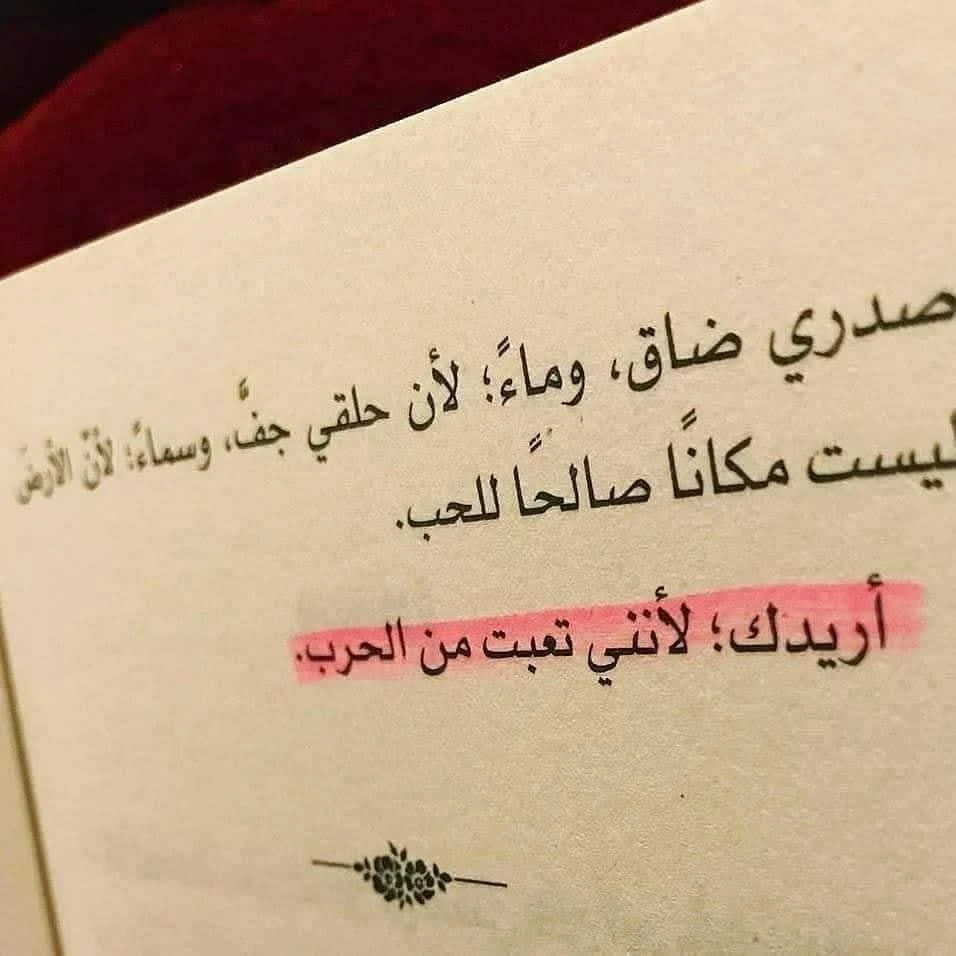 صدري ضاق، وماءً؛ لأن حلقي جفَّ، وسماءً؛ لأنّ الأرض
ليست مكانًا صالحًا للحب.
أريدك؛ لأنني تعبت من الحرب.